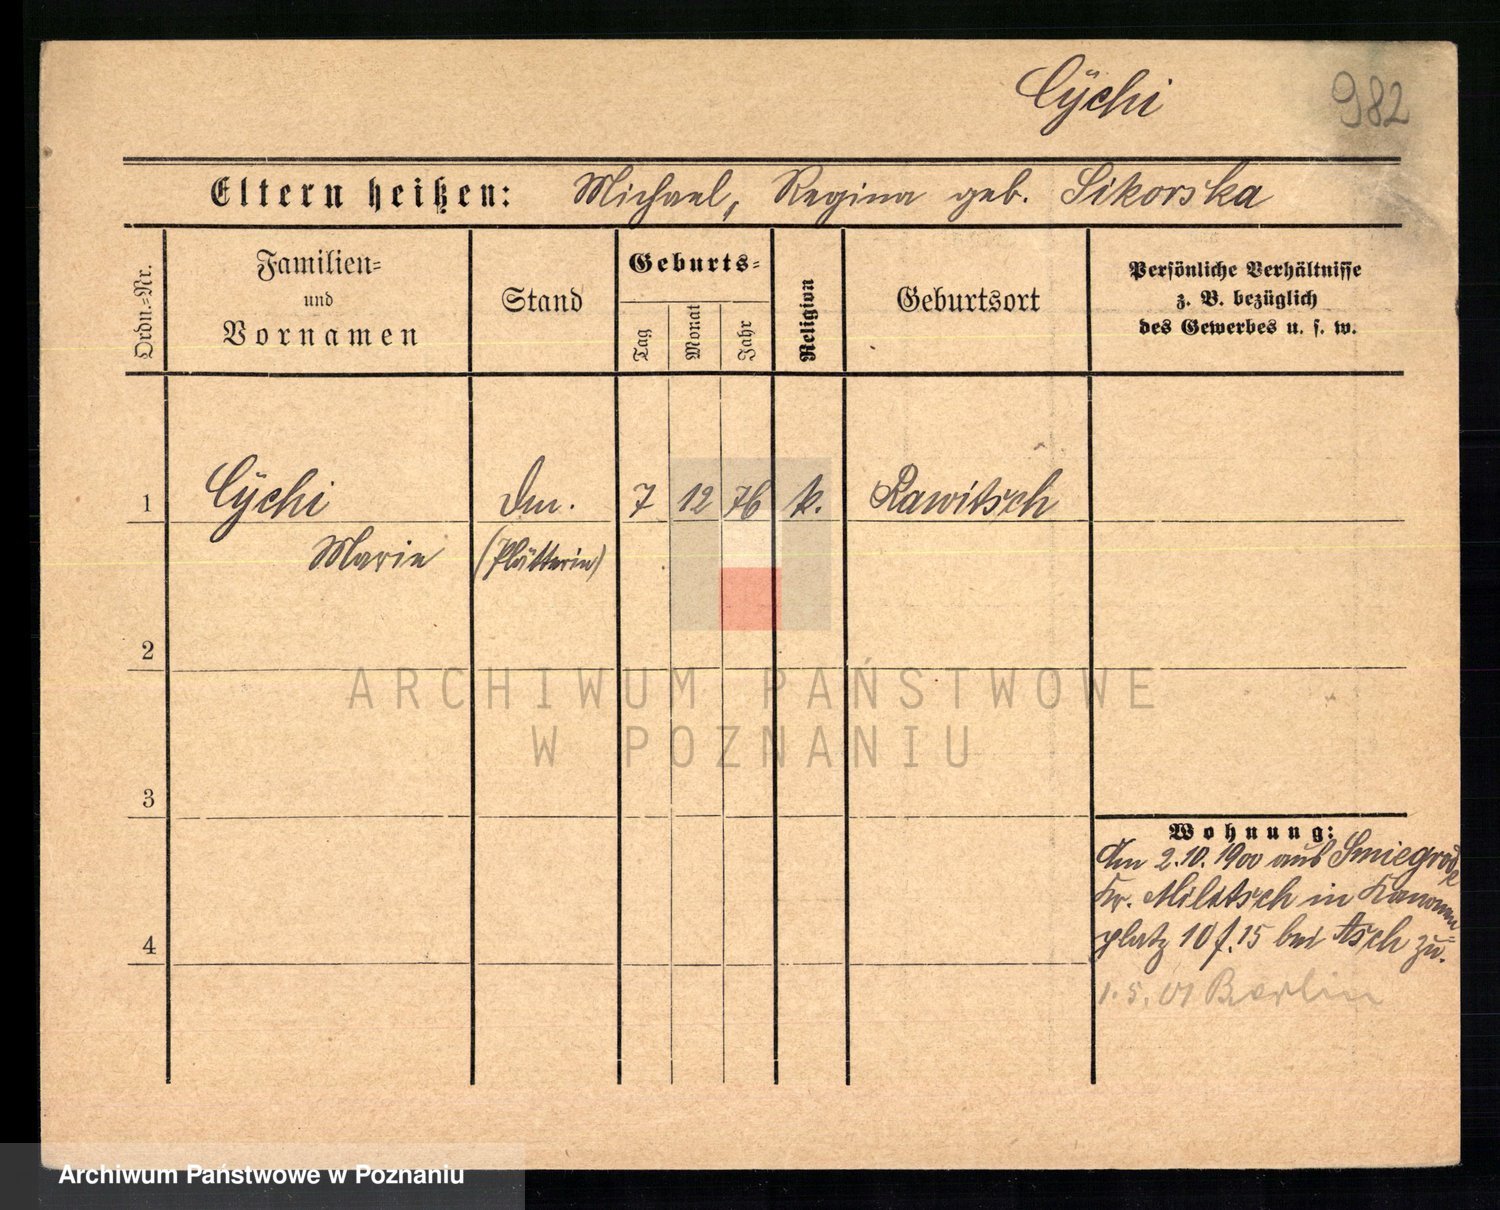 Cÿchi 982
Eltern heißen: Michael, Regina geb. Sikorska
Ordn.=Nr.
Familien=
und
Vornamen
Stand
Geburts=
Tag
Monat
Jahr
Religion
Geburtsort
Persönliche Verhältnisse
z. B. bezüglich
des Gewerbes u. s. w.
1 Cÿchi 7 12 76 k. Rawitsch
Marie (Plätterin)
2
ARCHIWUM PAŃSTWOWE
W POZNANIU
3
Wohnung:
Am 2.10.1900 aus Smiegrode
Kr. Militsch in Kanonen=
4 platz 10 f. 15 bei Asch zu.
1.5.01 Berlin
Archiwum Państwowe w Poznaniu